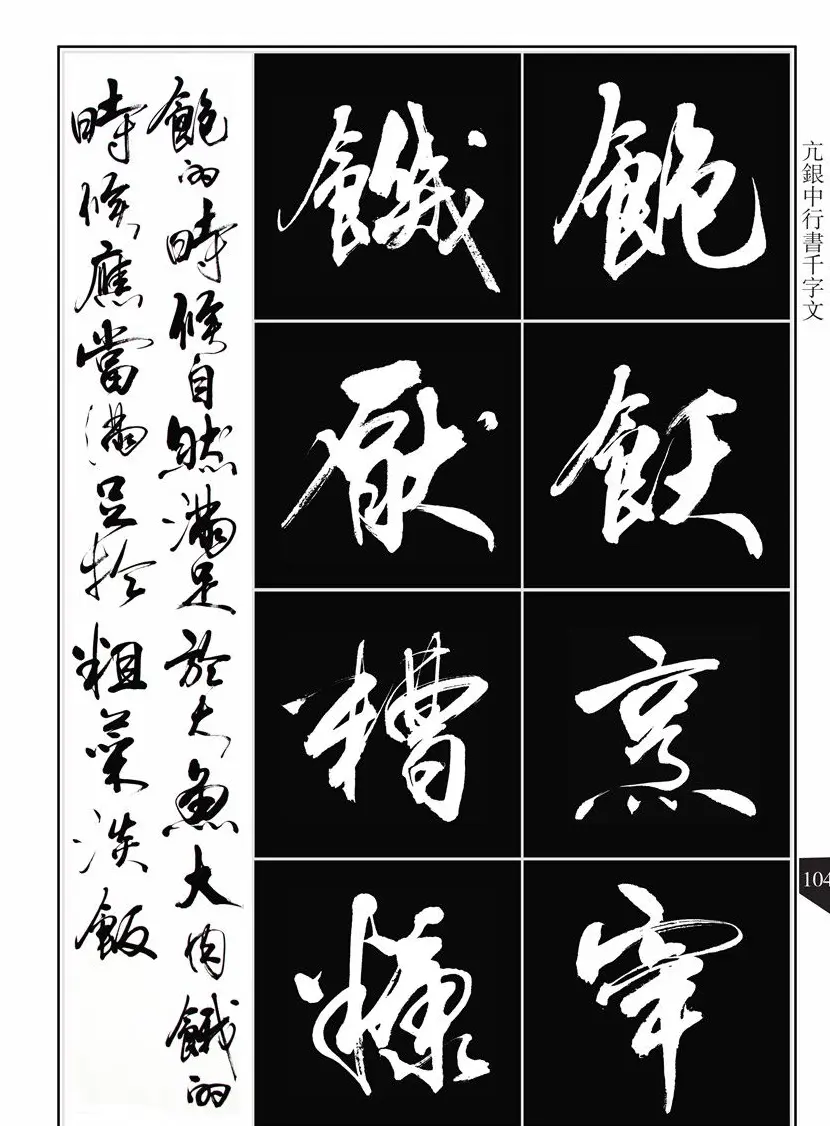 亢銀中行書千字文
104
飽飫烹宰
餓厭糟糠
飽的時候自然滿足於大魚大肉餓的
時候應當滿足於粗菜淡飯